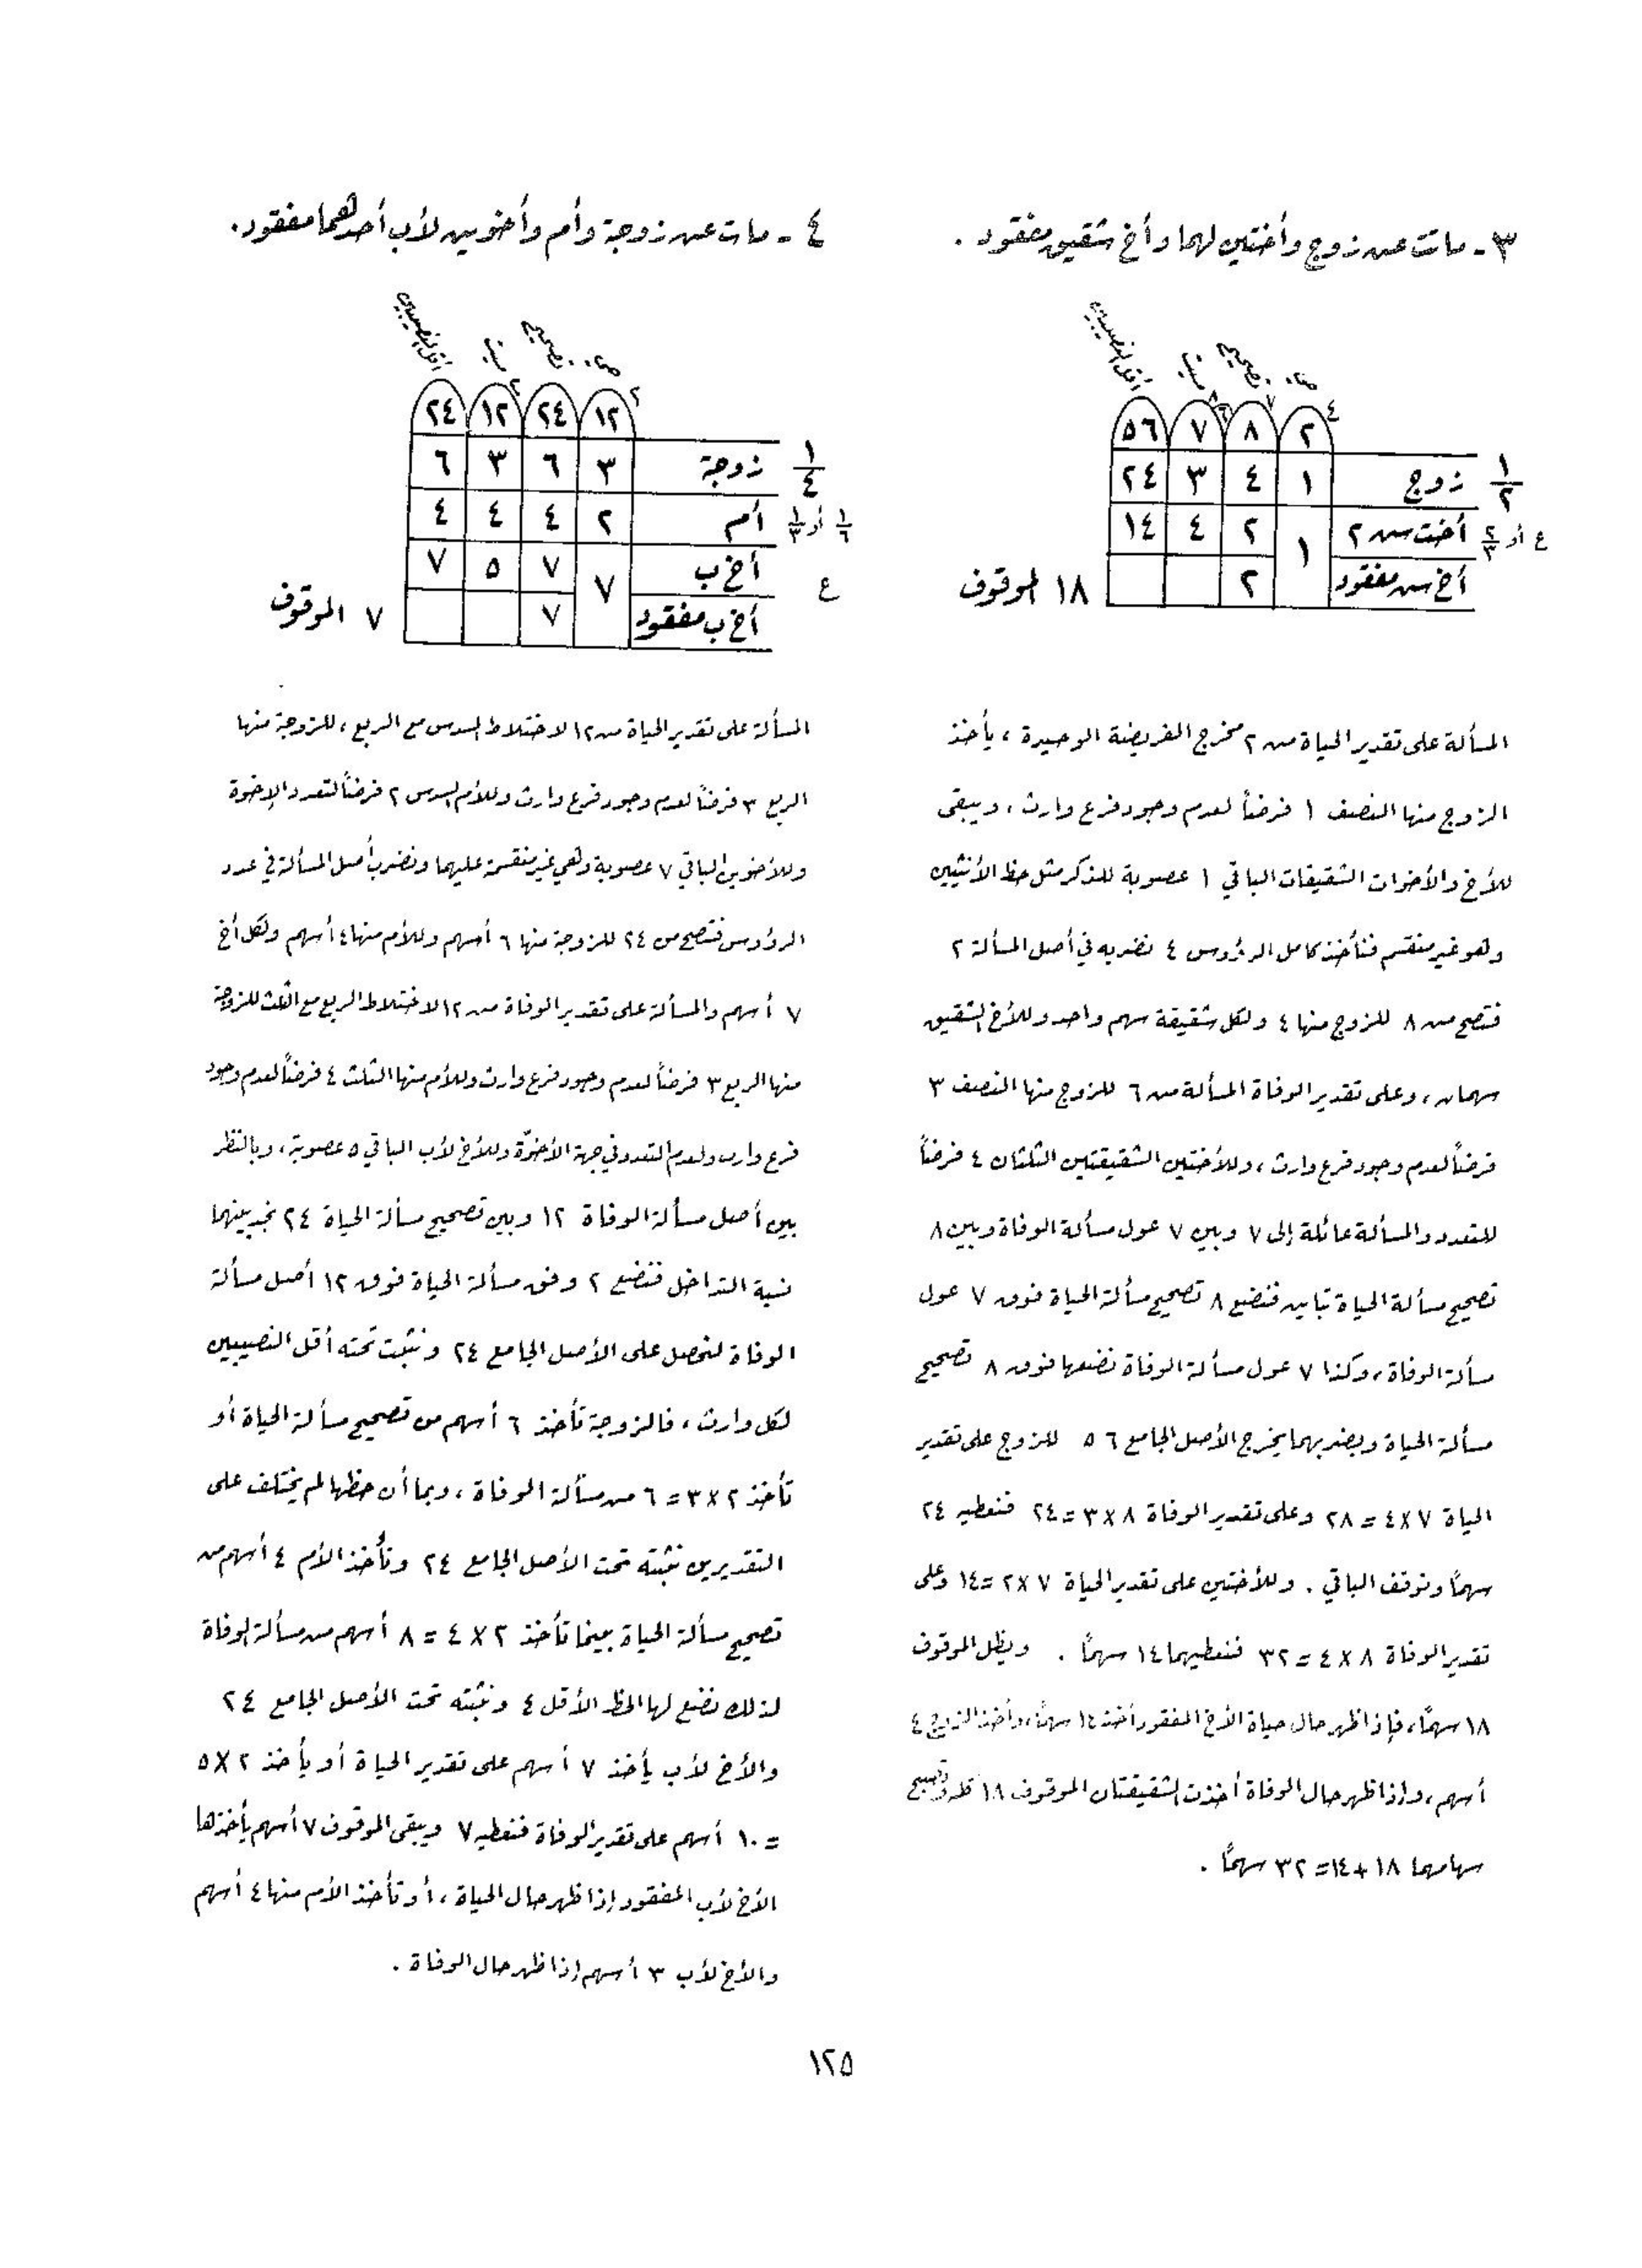 ٣ - ماتت عن زوج وأختين لهما وأخ شقيق مفقود .
حي
تصحيح
ميت
أقل النصيبين
٤ ٧ ٨
٢ ٨ ٧ ٥٦
١/٢ زوج ١ ٤ ٣ ٢٤
ع أو ٢/٣ أخت س ٢ ١ ٢ ٤ ١٤
أخ س مفقود ٢ ١٨ الموقوف
المسألة على تقدير الحياة من ٢ مخرج الفريضة الوحيدة ، يأخذ
الزوج منها النصف ١ فرضاً لعدم وجود فرع وارث ، ويبقى
للأخ والأخوات الشقيقات الباقي ١ عصوبة للذكر مثل حظ الأنثيين
وهو غير منقسم فنأخذ كامل الرؤوس ٤ نضربه في أصل المسألة ٢
فتصح من ٨ للزوج منها ٤ ولكل شقيقة سهم واحد وللأخ الشقيق
سهمان ، وعلى تقدير الوفاة المسألة من ٦ للزوج منها النصف ٣
فرضاً لعدم وجود فرع وارث ، وللأختين الشقيقتين الثلثان ٤ فرضاً
للتعدد والمسألة عائلة إلى ٧ وبين ٧ عول مسألة الوفاة وبين ٨
تصحيح مسألة الحياة تباين فنضع ٨ تصحيح مسألة الحياة فوق ٧ عول
مسألة الوفاة ، وكذا ٧ عول مسألة الوفاة نضعها فوق ٨ تصحيح
مسألة الحياة وبضربهما يخرج الأصل الجامع ٥٦ للزوج على تقدير
الحياة ٧ × ٤ = ٢٨ وعلى تقدير الوفاة ٨ × ٣ = ٢٤ فنعطيه ٢٤
سهماً ونوقف الباقي . وللأختين على تقدير الحياة ٧ × ٢ = ١٤ وعلى
تقدير الوفاة ٨ × ٤ = ٣٢ فنعطيهما ١٤ سهماً . ويظل الموقوف
١٨ سهماً ، فإذا ظهر حال حياة الأخ المفقود أخذ ١٤ سهماً ، وأخذ الزوج ٤
أسهم ، وإذا ظهر حال الوفاة أخذت الشقيقتان الموقوف ١٨ كله وتصبح
سهامهما ١٨ + ١٤ = ٣٢ سهماً .
٤ - مات عن زوجة وأم وأخوين لأب أحدهما مفقود .
حي
تصحيح
ميت
أقل النصيبين
٢ ٢
١٢ ٢٤ ١٢ ٢٤
١/٤ زوجة ٣ ٦ ٣ ٦
١/٦ أو ١/٣ أم ٢ ٤ ٤ ٤
ع أخ ب ٧ ٧ ٥ ٧
أخ ب مفقود ٧ ٧ الموقوف
المسألة على تقدير الحياة من ١٢ لاختلاط السدس مع الربع ، للزوجة منها
الربع ٣ فرضاً لعدم وجود فرع وارث وللأم السدس ٢ فرضاً لتعدد الإخوة
وللأخوين الباقي ٧ عصوبة وهي غير منقسمة عليهما ونضرب أصل المسألة في عدد
الرؤوس فتصح من ٢٤ للزوجة منها ٦ أسهم وللأم منها ٤ أسهم ولكل أخ
٧ أسهم والمسألة على تقدير الوفاة من ١٢ لاختلاط الربع مع الثلث للزوجة
منها الربع ٣ فرضاً لعدم وجود فرع وارث وللأم منها الثلث ٤ فرضاً لعدم وجود
فرع وارث ولعدم التعدد في جهة الأخوّة وللأخ لأب الباقي ٥ عصوبة ، وبالنظر
بين أصل مسألة الوفاة ١٢ وبين تصحيح مسألة الحياة ٢٤ نجد بينهما
نسبة التداخل فنضع ٢ وفق مسألة الحياة فوق ١٢ أصل مسألة
الوفاة لنحصل على الأصل الجامع ٢٤ ونثبت تحته أقل النصيبين
لكل وارث ، فالزوجة تأخذ ٦ أسهم من تصحيح مسألة الحياة أو
تأخذ ٢ × ٣ = ٦ من مسألة الوفاة ، وبما أن حظها لم يختلف على
التقديرين نثبته تحت الأصل الجامع ٢٤ وتأخذ الأم ٤ أسهم من
تصحيح مسألة الحياة بينما تأخذ ٢ × ٤ = ٨ أسهم من مسألة الوفاة
لذلك نضع لها الحظ الأقل ٤ ونثبته تحت الأصل الجامع ٢٤
والأخ لأب يأخذ ٧ أسهم على تقدير الحياة أو يأخذ ٢ × ٥
= ١٠ أسهم على تقدير الوفاة فنعطيه ٧ ويبقى الموقوف ٧ أسهم يأخذها
الأخ لأب المفقود إذا ظهر حال الحياة ، أو تأخذ الأم منها ٤ أسهم
والأخ لأب ٣ أسهم إذا ظهر حال الوفاة .
١٢٥